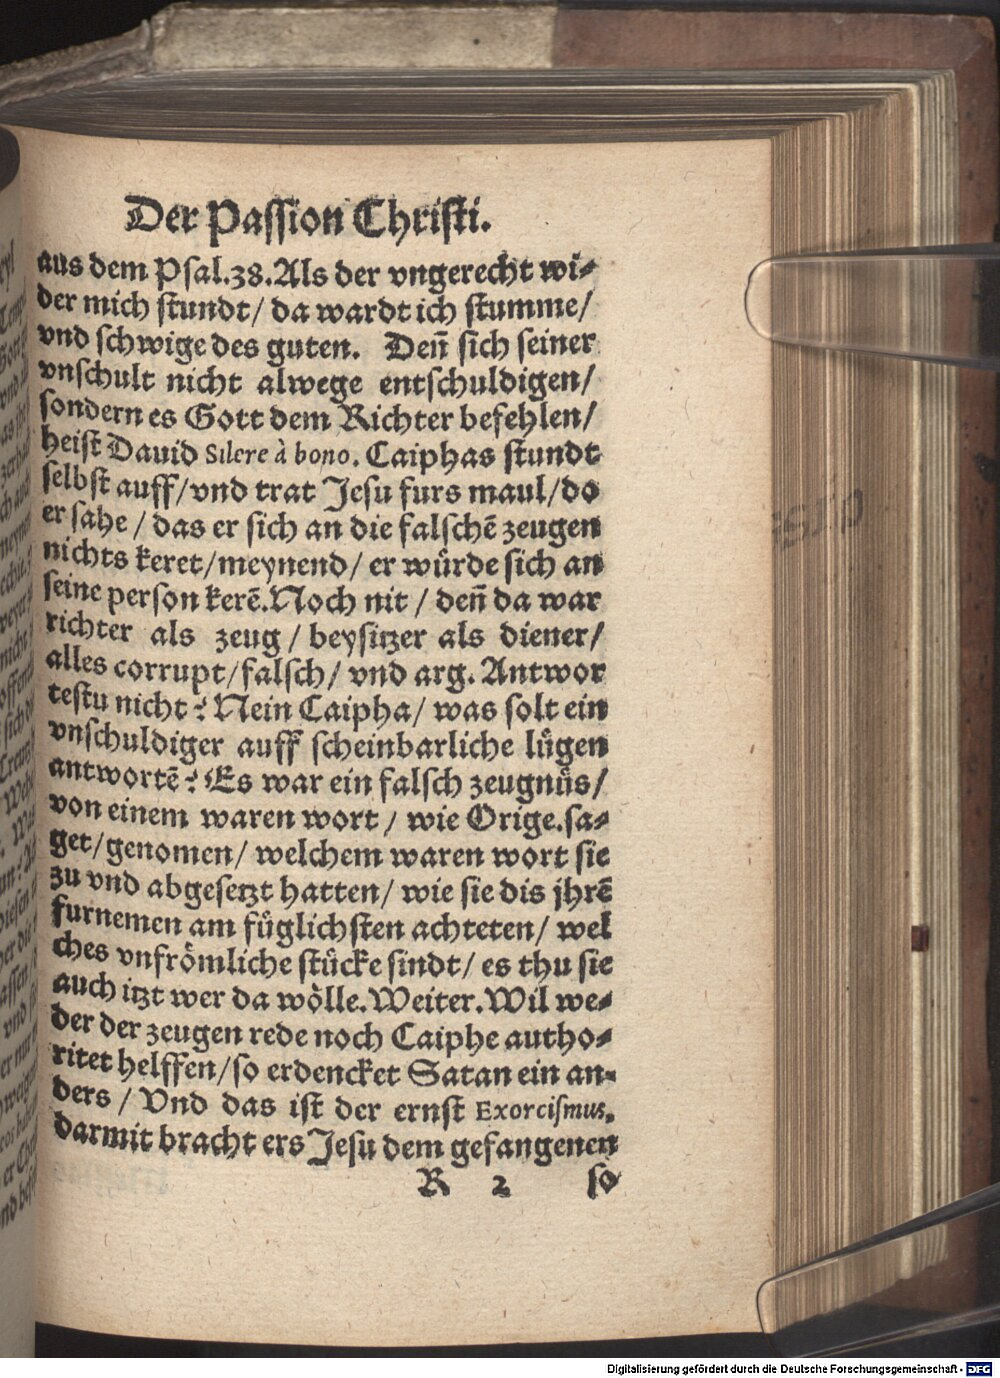 Der Passion Christi.
aus dem Psal.38.Als der vngerecht wi⸗
der mich stundt/ da wardt ich stumme/
vnd schwige des guten. Den̄ sich seiner
vnschult nicht alwege entschuldigen/
sondern es Gott dem Richter befehlen/
heist Dauid Silere à bono. Caiphas stundt
selbst auff/vnd trat Jesu furs maul/do
er sahe / das er sich an die falschē zeugen
nichts keret/meynend/ er wůrde sich an
seine person kerē.Noch nit / den̄ da war
richter als zeug / beysitzer als diener/
alles corrupt/falsch/ vnd arg. Antwor
testu nicht? Nein Caipha/ was solt ein
vnschuldiger auff scheinbarliche lůgen
antwortē? Es war ein falsch zeugnůs/
von einem waren wort / wie Orige.sa⸗
get/genomen/ welchem waren wort sie
zu vnd abgesetzt hatten/ wie sie dis jhrē
furnemen am fůglichsten achteten/ wel
ches vnfrömliche stůcke sindt/ es thu sie
auch itzt wer da wölle.Weiter.Wil we⸗
der der zeugen rede noch Caiphe autho⸗
ritet helffen/so erdencket Satan ein an⸗
ders / Vnd das ist der ernst Exorcismus,
darmit bracht ers Jesu dem gefangenen
R 2 so
Digitalisierung gefördert durch die Deutsche Forschungsgemeinschaft - DFG